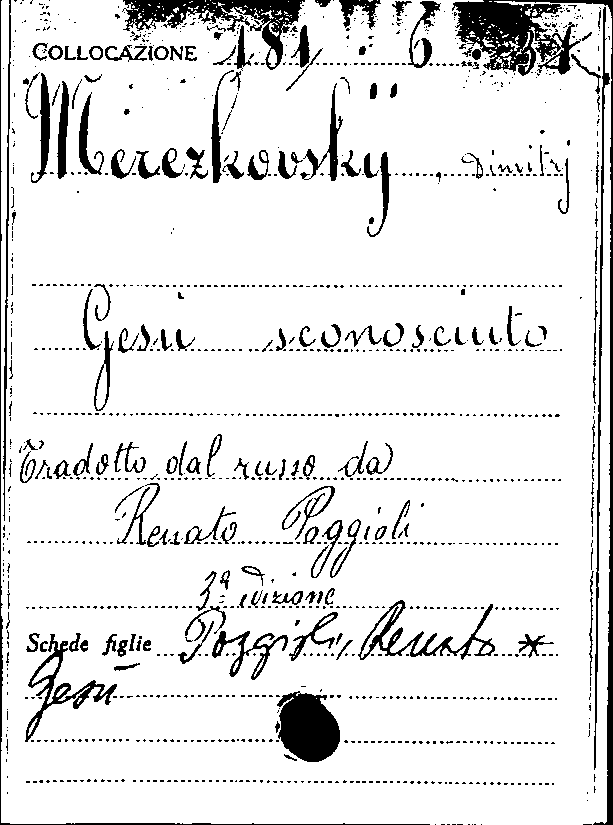 COLLOCAZIONE 181 . 6 . 34
Merezkovskÿ, Dimitrj
Gesù sconosciuto
Tradotto dal russo da
Renato Poggioli
3ª edizione
Schede figlie Poggioli, Renato *
Gesù